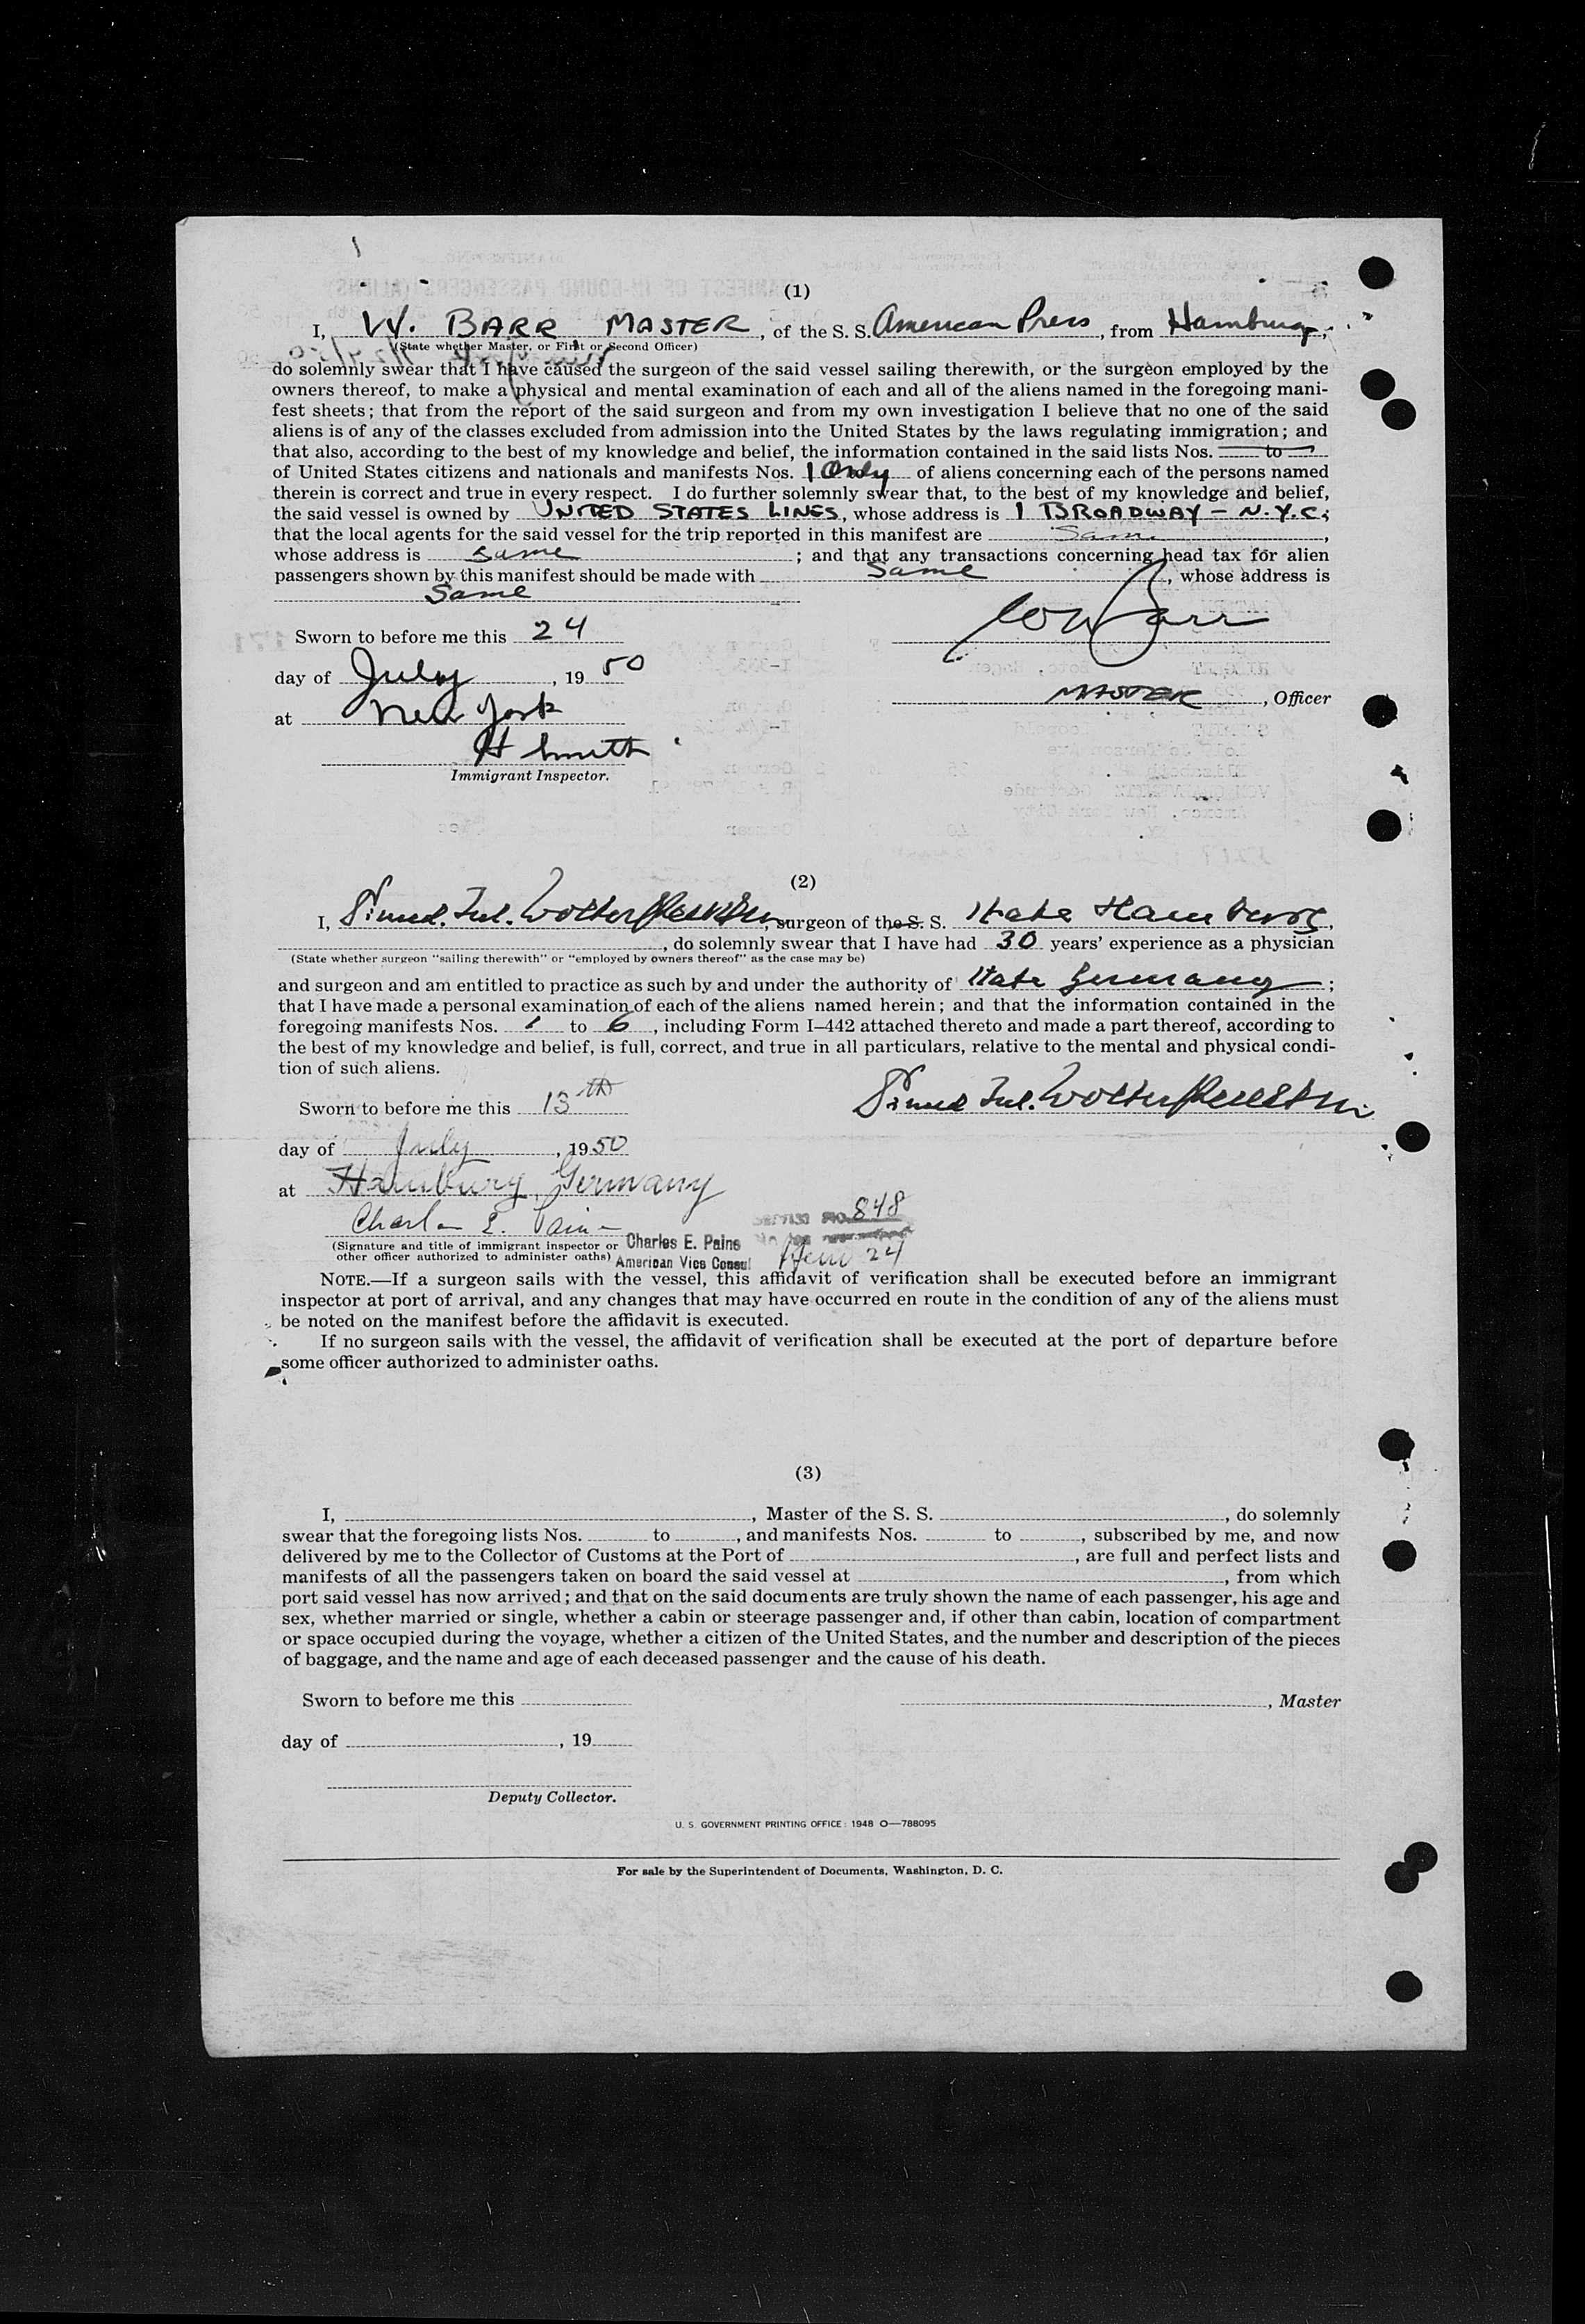 (1)
I, W. BARR MASTER, of the S. S. American Press, from Hamburg,
(State whether Master, or First or Second Officer)
do solemnly swear that I have caused the surgeon of the said vessel sailing therewith, or the surgeon employed by the
owners thereof, to make a physical and mental examination of each and all of the aliens named in the foregoing mani-
fest sheets; that from the report of the said surgeon and from my own investigation I believe that no one of the said
aliens is of any of the classes excluded from admission into the United States by the laws regulating immigration; and
that also, according to the best of my knowledge and belief, the information contained in the said lists Nos. to
of United States citizens and nationals and manifests Nos. 1 Only of aliens concerning each of the persons named
therein is correct and true in every respect. I do further solemnly swear that, to the best of my knowledge and belief,
the said vessel is owned by UNITED STATES LINES, whose address is 1 BROADWAY - N.Y.C.;
that the local agents for the said vessel for the trip reported in this manifest are Same,
whose address is same; and that any transactions concerning head tax for alien
passengers shown by this manifest should be made with Same, whose address is
Same
Sworn to before me this 24
W Barr
day of July, 19 50
MASTER, Officer
at New York
H Smith
Immigrant Inspector.
(2)
I, surgeon of the S. S. State Hamburg,
, do solemnly swear that I have had 30 years' experience as a physician
(State whether surgeon "sailing therewith" or "employed by owners thereof" as the case may be)
and surgeon and am entitled to practice as such by and under the authority of State Germany;
that I have made a personal examination of each of the aliens named herein; and that the information contained in the
foregoing manifests Nos. 1 to 6, including Form I-442 attached thereto and made a part thereof, according to
the best of my knowledge and belief, is full, correct, and true in all particulars, relative to the mental and physical condi-
tion of such aliens.
Sworn to before me this 13th
day of July, 1950
at Hamburg, Germany
Charles E. Paine
848
(Signature and title of immigrant inspector or
other officer authorized to administer oaths)
Charles E. Paine
American Vice Consul
24
NOTE.—If a surgeon sails with the vessel, this affidavit of verification shall be executed before an immigrant
inspector at port of arrival, and any changes that may have occurred en route in the condition of any of the aliens must
be noted on the manifest before the affidavit is executed.
If no surgeon sails with the vessel, the affidavit of verification shall be executed at the port of departure before
some officer authorized to administer oaths.
(3)
I, , Master of the S. S. , do solemnly
swear that the foregoing lists Nos. to , and manifests Nos. to , subscribed by me, and now
delivered by me to the Collector of Customs at the Port of , are full and perfect lists and
manifests of all the passengers taken on board the said vessel at , from which
port said vessel has now arrived; and that on the said documents are truly shown the name of each passenger, his age and
sex, whether married or single, whether a cabin or steerage passenger and, if other than cabin, location of compartment
or space occupied during the voyage, whether a citizen of the United States, and the number and description of the pieces
of baggage, and the name and age of each deceased passenger and the cause of his death.
Sworn to before me this
, Master
day of , 19
Deputy Collector.
U. S. GOVERNMENT PRINTING OFFICE: 1948 O—788095
For sale by the Superintendent of Documents, Washington, D. C.